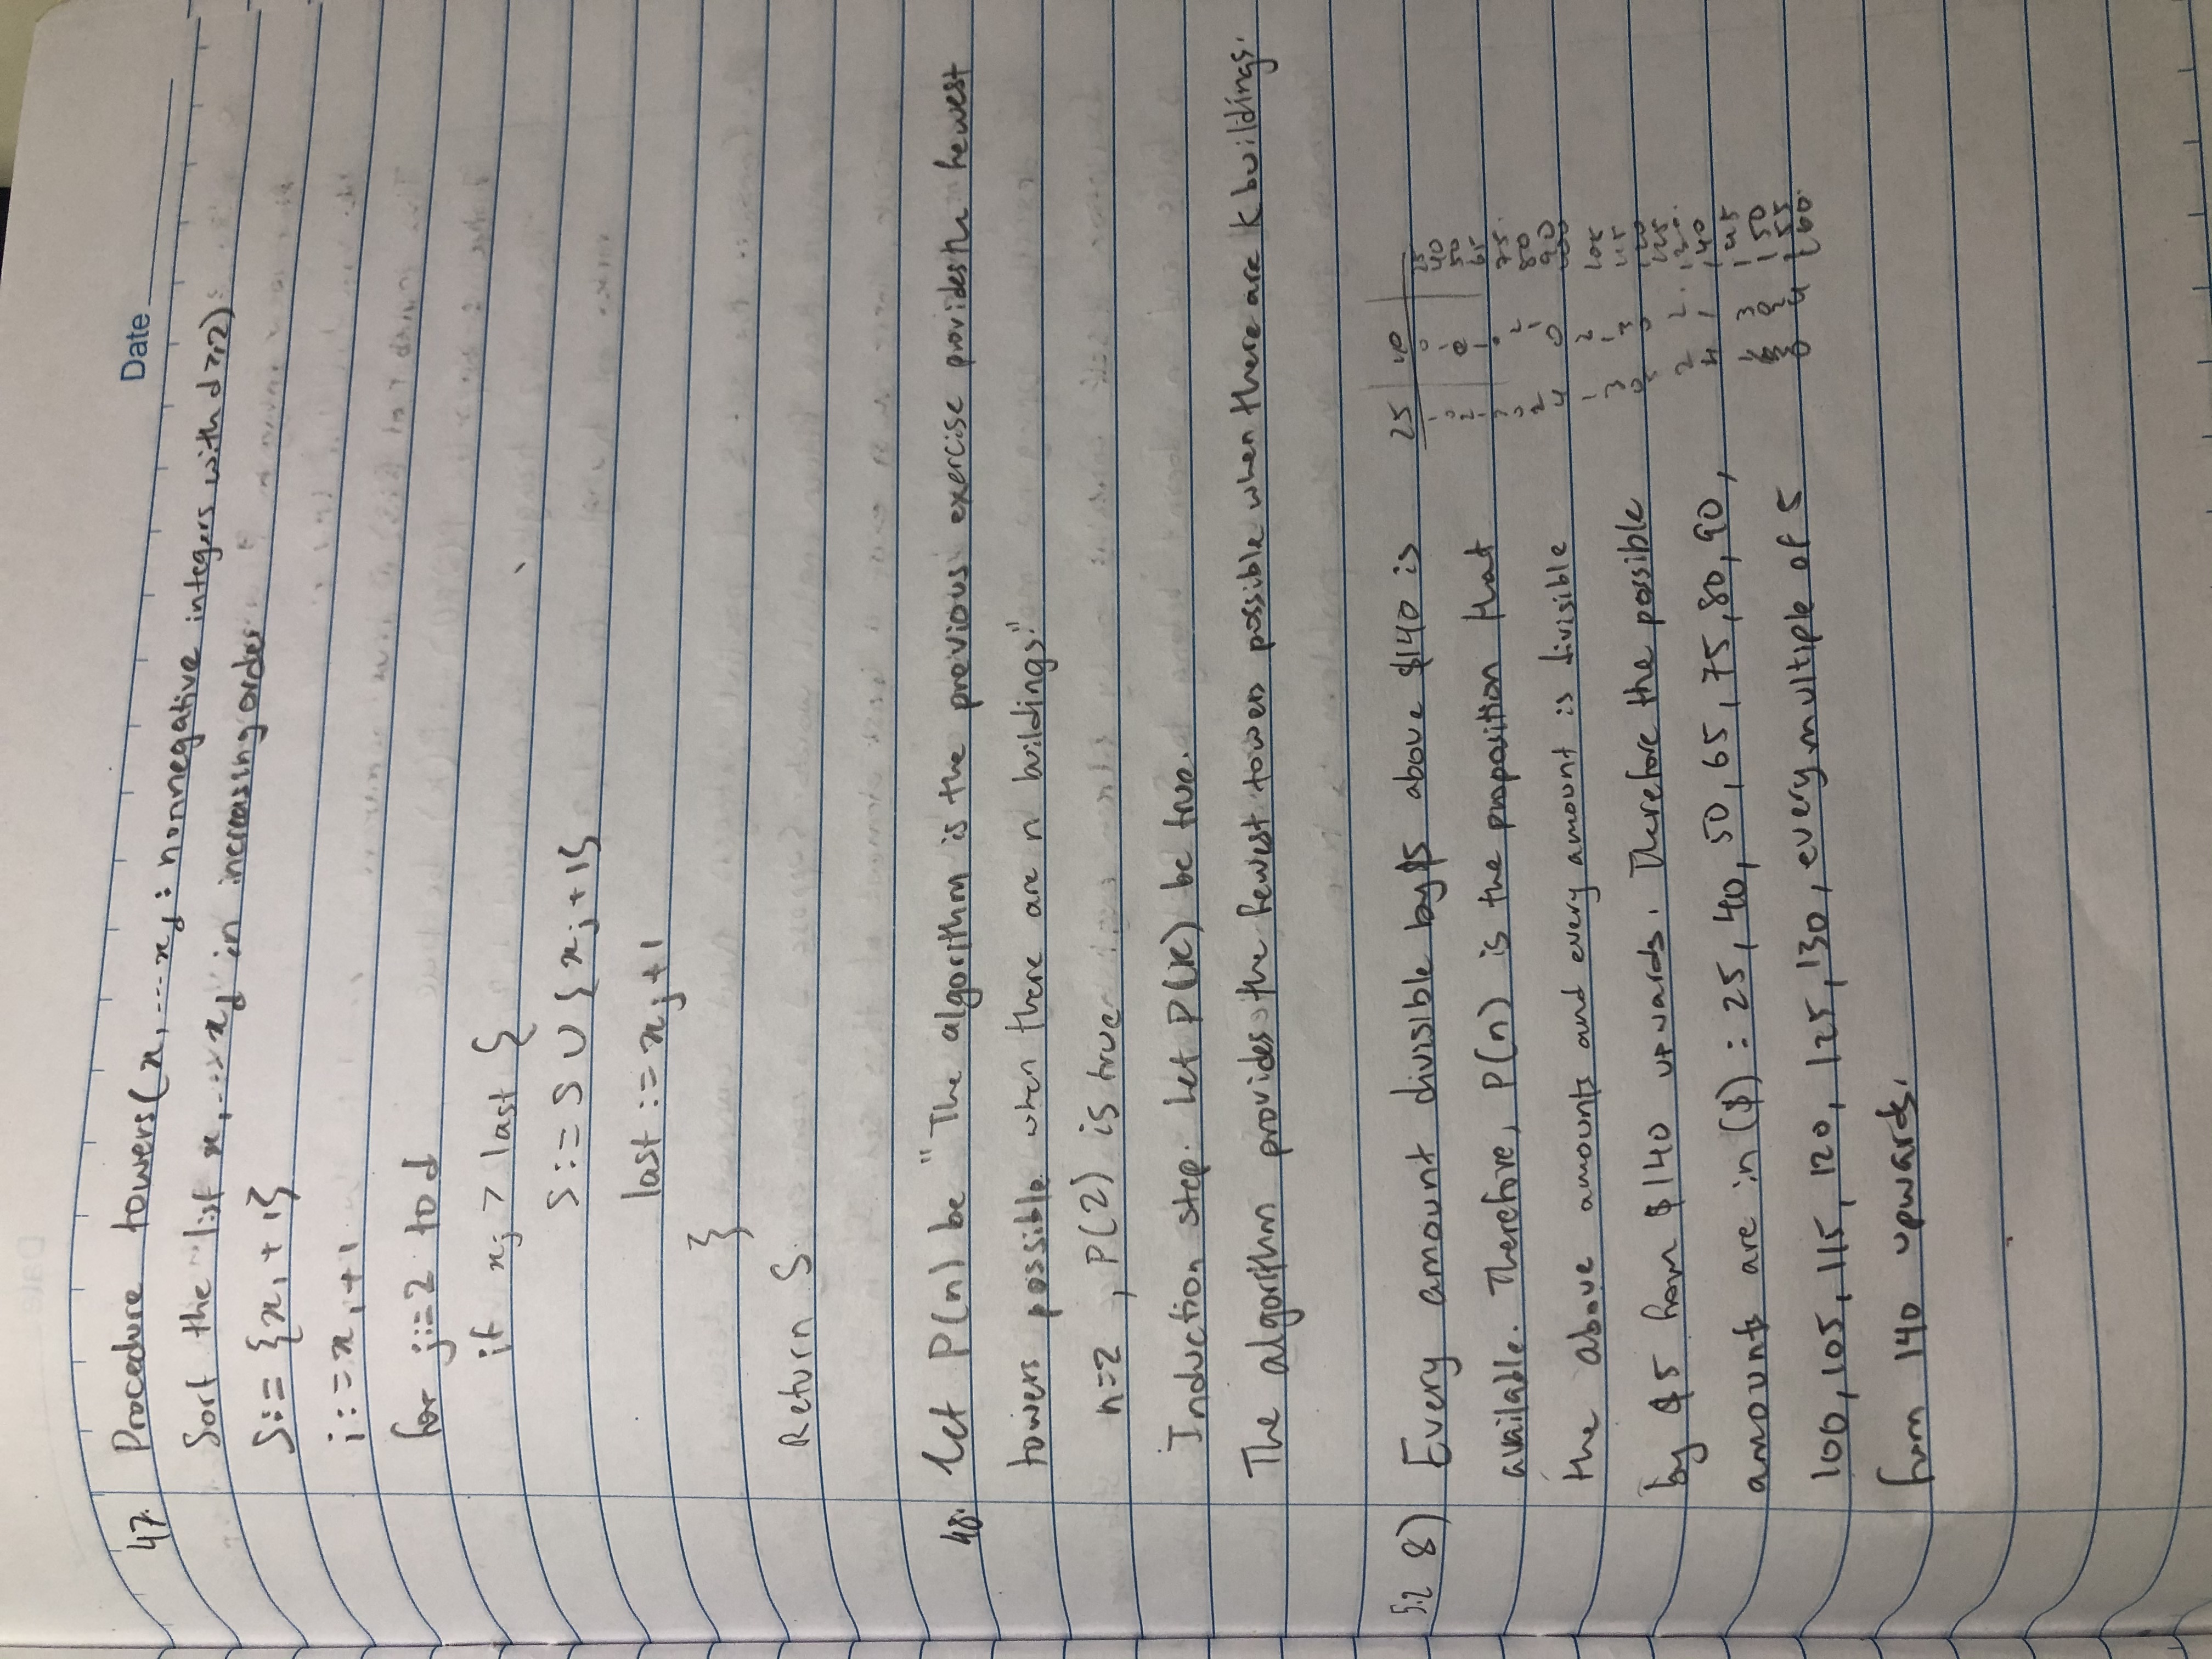 Date
47. Procedure towers(x₁ ... x_d : nonnegative integers with d ≥ 2)
Sort the list x₁ ... x_d in increasing order
S := {x₁ + 1}
i := x₁ + 1
for j := 2 to d
if x_j > last {
S := S ∪ { x_j + 1}
last := x_j + 1
}
Return S.
48. Let P(n) be "The algorithm is the previous exercise provides the fewest
towers possible when there are n buildings."
n=2 , P(2) is true
Induction step. Let P(k) be true.
The algorithm provides the fewest towers possible when there are k buildings.
5.2 8) Every amount divisible by $5 above $140 is
available. Therefore, P(n) is the proposition that
the above amounts and every amount is divisible
by $5 from $140 upwards. Therefore the possible
amounts are in ($) : 25, 40, 50, 65, 75, 80, 90,
100, 105, 115, 120, 125, 130, every multiple of 5
from 140 upwards.
25 40
1 0 25
0 1 40
2 0 50
1 1 65
3 0 75
0 2 80
2 1 90
4 0
1 2 105
3 1 115
0 3 120
5 0 125
2 2 130
4 1 140
1 3 145
150
155
0 4 160